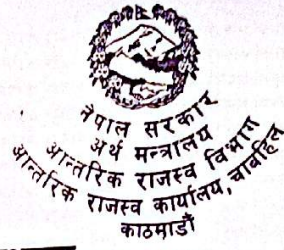 नेपाल सरकार
अर्थ मन्त्रालय
आन्तरिक राजस्व विभाग
आन्तरिक राजस्व कार्यालय,
काठमाडौं